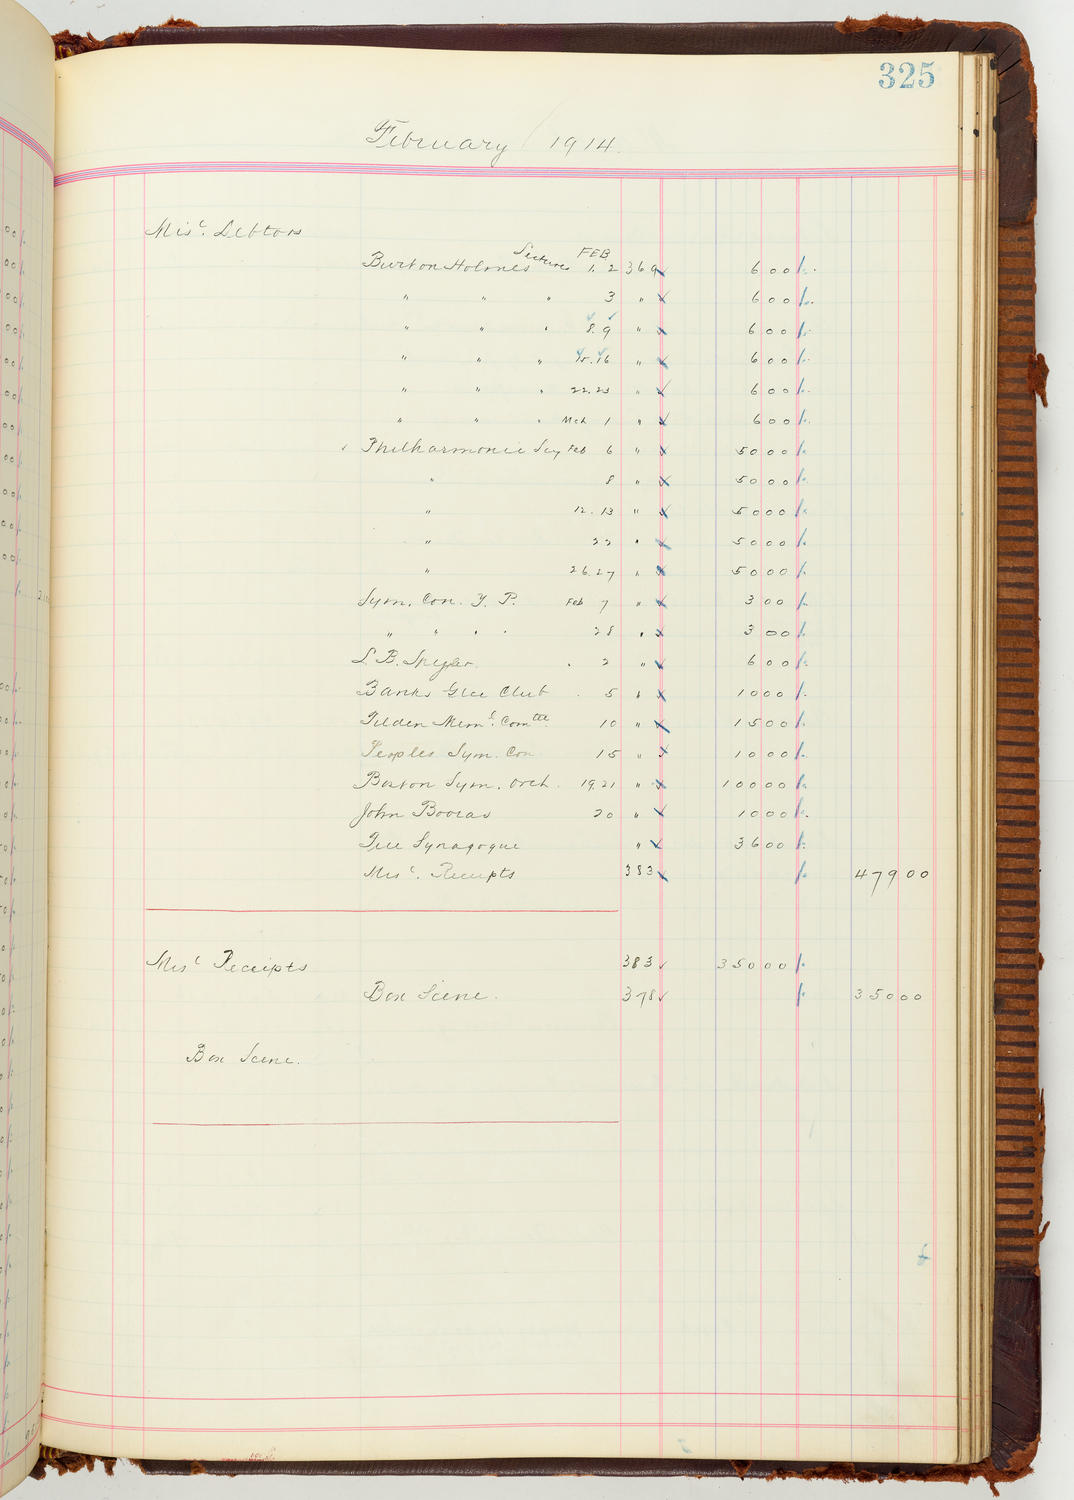 325
February 1914.
Misc. Debtors
Burton Holmes Lectures FEB 1. 2 369 6 00
" " " 3 " 6 00
" " " 8. 9 " 6 00
" " " 15. 16 " 6 00
" " " 22. 23 " 6 00
" " " Mch 1 " 6 00
Philharmonic Socy Feb 6 " 50 00
" 8 " 50 00
" 12. 13 " 50 00
" 22 " 50 00
" 26. 27 " 50 00
Sym. Con. Y. P. Feb 7 " 3 00
" " " " 28 " 3 00
L. B. 2 " 6 00
Banks Glee Club 5 " 10 00
Tilden Meml. Comtee 10 " 15 00
Peoples Sym. Con 15 " 10 00
Boston Sym. Orch. 19. 21 " 100 00
John 20 " 10 00
Free Synagogue " 36 00
Misc. Receipts 383 479 00
Misc Receipts 383 350 00
Box Scene. 378 350 00
Box Scene.